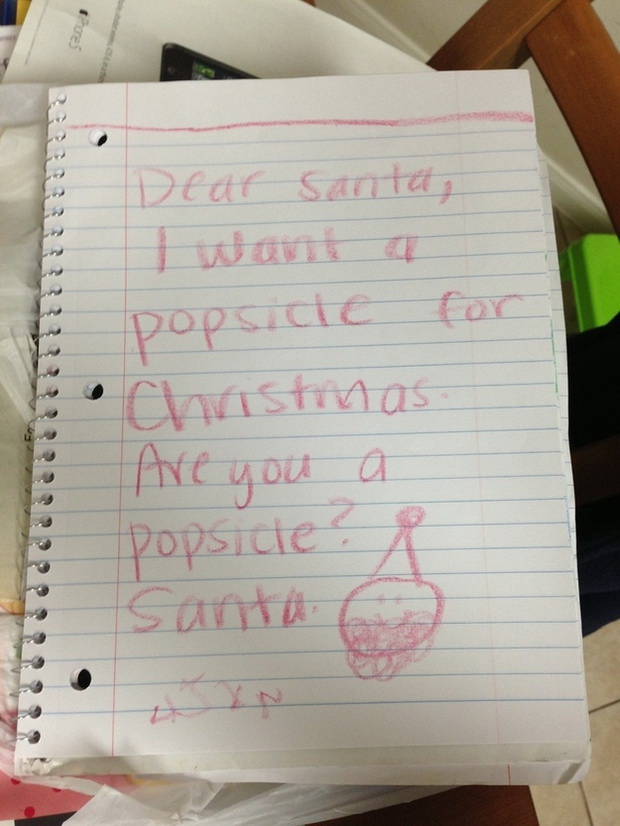 Dear Santa,
I want a
popsicle for
Christmas.
Are you a
popsicle?
Santa.